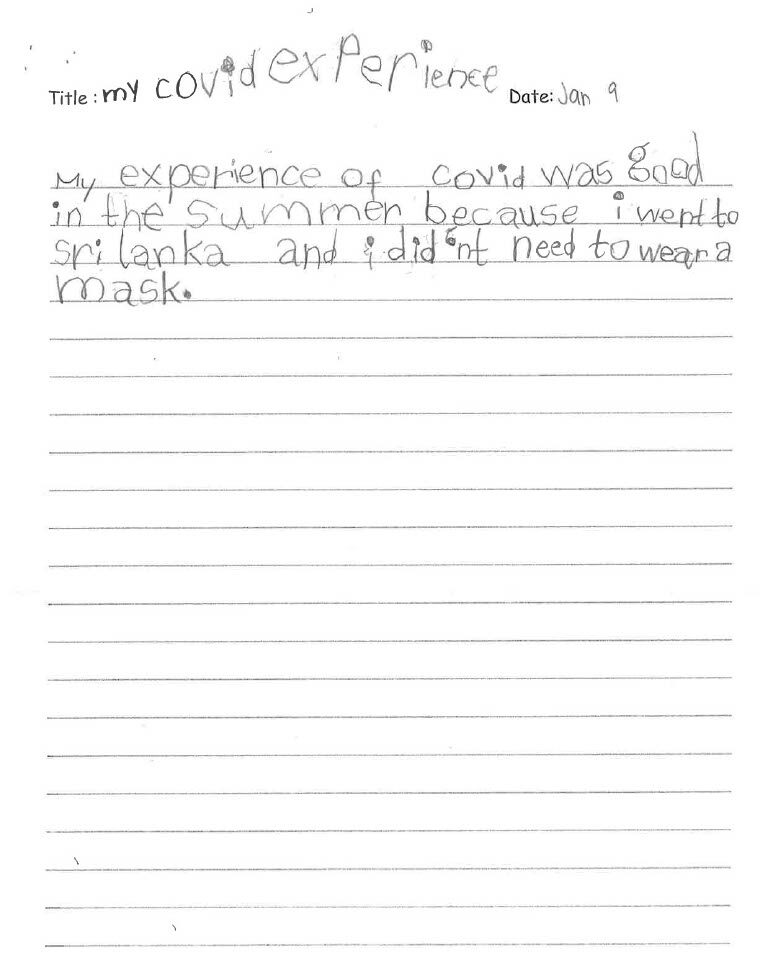 Title : my covid experience Date: Jan 9
My experience of covid was good
in the summer because i went to
sri lanka and i did'nt need to wear a
mask.